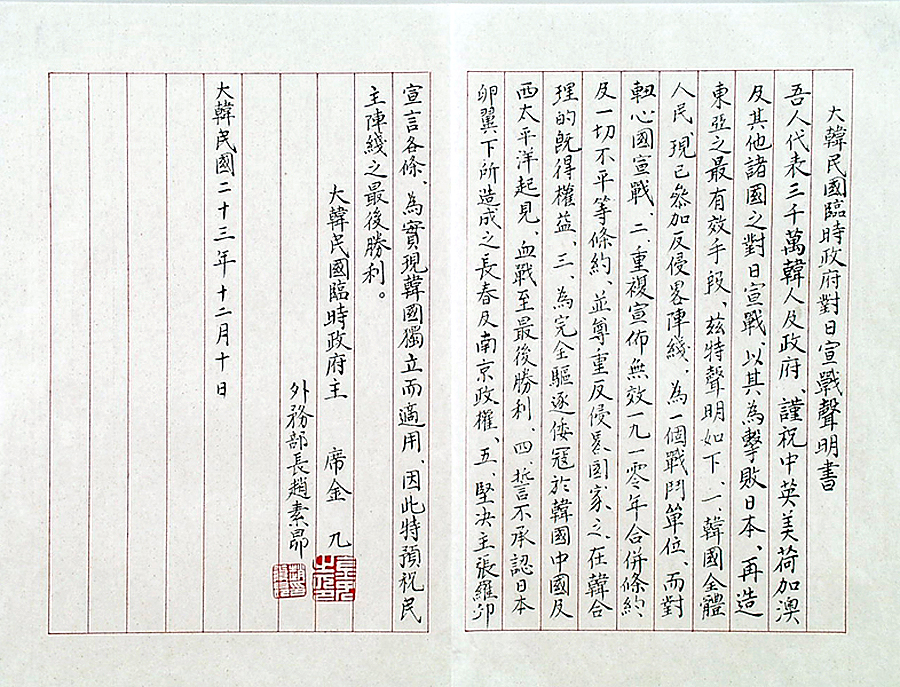 大韓民國臨時政府對日宣戰聲明書
吾人代表三千萬韓人及政府、謹祝中英美荷加澳
及其他諸國之對日宣戰、以其為擊敗日本、再造
東亞之最有效手段、茲特聲明如下、一、韓國全體
人民、現已參加反侵畧陣綫、為一個戰鬥單位、而對
軸心國宣戰、二、重複宣佈無效一九一零年合併條約
及一切不平等條約、並尊重反侵畧國家之、在韓合
理的既得權益、三、為完全驅逐倭寇於韓國中國及
西太平洋起見、血戰至最後勝利、四、誓不承認日本
卵翼下所造成之長春及南京政權、五、堅決主張羅卯
宣言各條、為實現韓國獨立而適用、因此特預祝民
主陣綫之最後勝利。
大韓民國臨時政府主 席金 九
外務部長趙素昂
大韓民國二十三年十二月十日